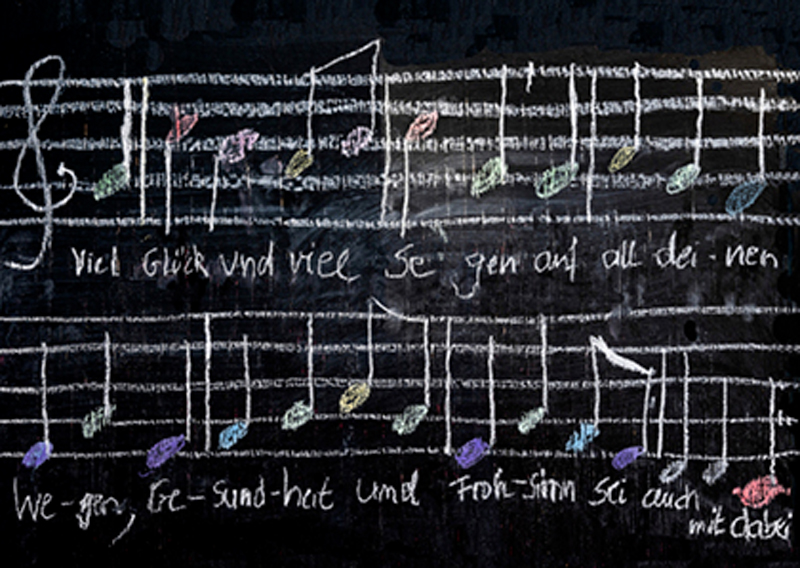 Viel Glück und viel Se gen auf all dei-nen
We-gen, Ge-sund-heit und Froh-sinn sei auch
mit dabei